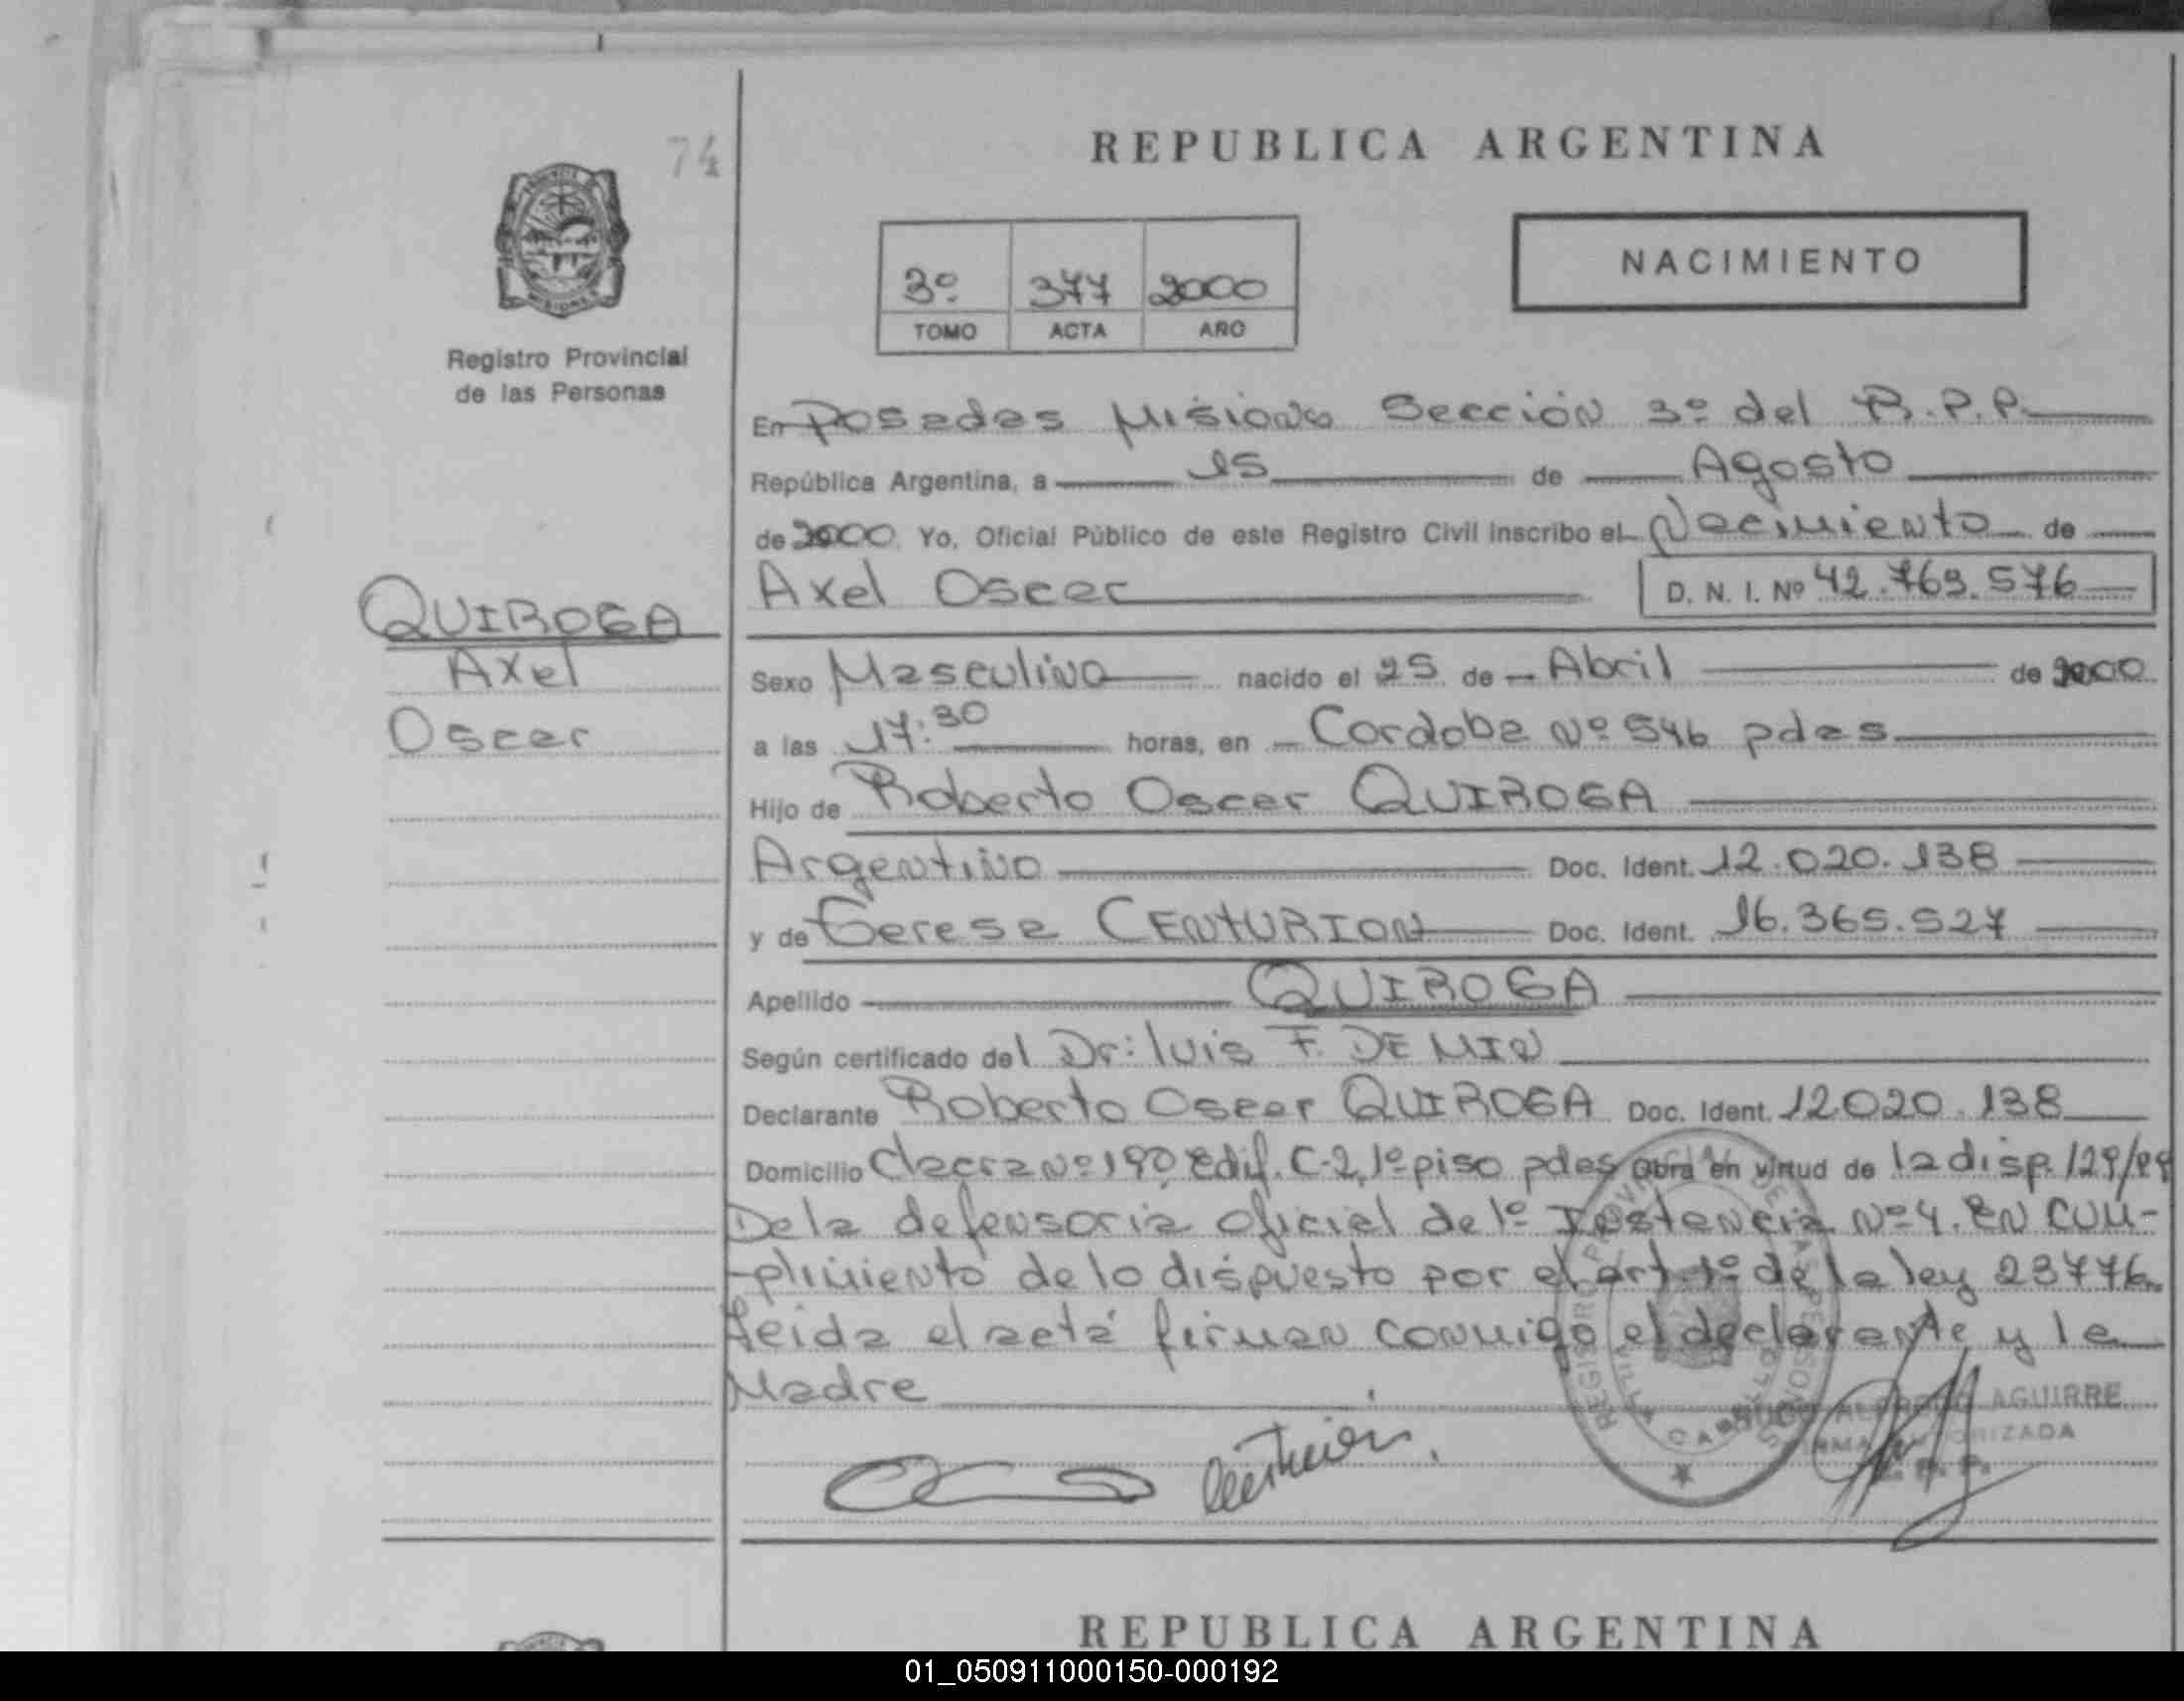 74
REPUBLICA ARGENTINA
NACIMIENTO
3º 377 2000
TOMO ACTA AÑO
Registro Provincial
de las Personas
En Posadas Misiones Sección 3º del R.P.P.
República Argentina, a 15 de Agosto
de 2000 Yo, Oficial Público de este Registro Civil inscribo el Nacimiento de
Axel Oscar D. N. I. Nº 42.769.576
QUIROGA
Axel
Oscar
Sexo Masculino nacido el 25 de Abril de 2000
a las 17:30 horas, en Cordoba Nº 546 pdas
Hijo de Roberto Oscar QUIROGA
Argentino Doc. Ident. 12.020.138
y de Teresa CENTURION Doc. Ident. 16.365.527
Apellido QUIROGA
Según certificado del Dr: luis F. DE MIN
Declarante Roberto Oscar QUIROGA Doc. Ident. 12020.138
Domicilio Chacra Nº 190 Edif. C-2, 1º piso pdas Obra en virtud de la disp. 129/99
De la defensoria oficial de 1º Instancia Nº 4. EN CUM-
-plimiento de lo dispuesto por el art. 1º de la ley 23776.
leida el acta firman conmigo el declarante y la
Madre
REGISTRO PROVINCIAL DE LAS PERSONAS
AGUIRRE
FIRMA AUTORIZADA
R. P. P.
REPUBLICA ARGENTINA
01_050911000150-000192